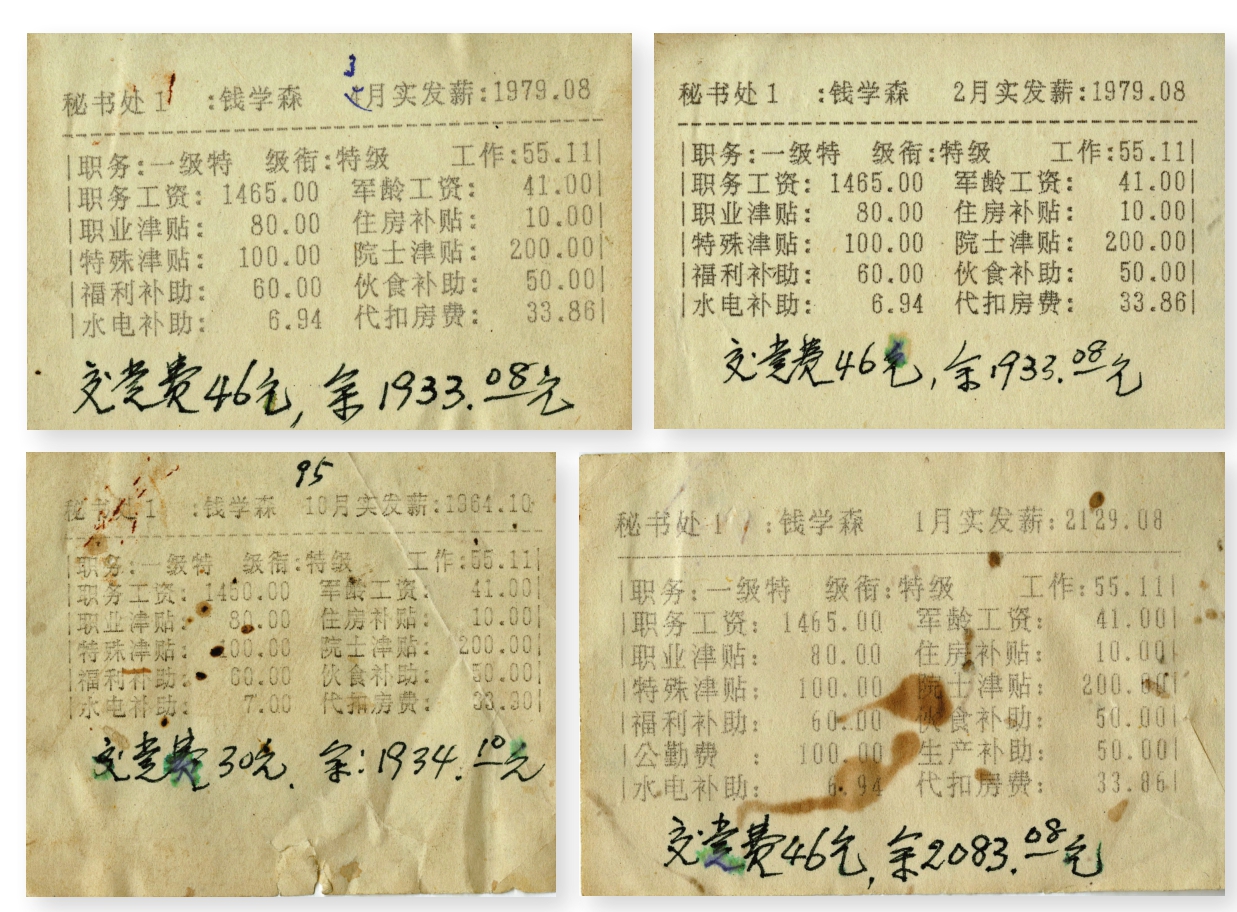 3
秘书处1 :钱学森 月实发薪:1979.08
|职务:一级特 级衔:特级 工作:55.11|
|职务工资: 1465.00 军龄工资: 41.00|
|职业津贴: 80.00 住房补贴: 10.00|
|特殊津贴: 100.00 院士津贴: 200.00|
|福利补助: 60.00 伙食补助: 50.00|
|水电补助: 6.94 代扣房费: 33.86|
交党费46元, 余1933.08元
秘书处1 :钱学森 2月实发薪:1979.08
|职务:一级特 级衔:特级 工作:55.11|
|职务工资: 1465.00 军龄工资: 41.00|
|职业津贴: 80.00 住房补贴: 10.00|
|特殊津贴: 100.00 院士津贴: 200.00|
|福利补助: 60.00 伙食补助: 50.00|
|水电补助: 6.94 代扣房费: 33.86|
交党费46元, 余1933.08元
95
秘书处1 :钱学森 10月实发薪:1964.10
|职务:一级特 级衔:特级 工作:55.11|
|职务工资: 1450.00 军龄工资: 41.00|
|职业津贴: 80.00 住房补贴: 10.00|
|特殊津贴: 100.00 院士津贴: 200.00|
|福利补助: 60.00 伙食补助: 50.00|
|水电补助: 7.00 代扣房费: 33.90|
交党费30元. 余:1934.10元
秘书处1 :钱学森 1月实发薪:2129.08
|职务:一级特 级衔:特级 工作:55.11|
|职务工资: 1465.00 军龄工资: 41.00|
|职业津贴: 80.00 住房补贴: 10.00|
|特殊津贴: 100.00 院士津贴: 200.00|
|福利补助: 60.00 伙食补助: 50.00|
|公勤费 : 100.00 生产补助: 50.00|
|水电补助: 6.94 代扣房费: 33.86|
交党费46元, 余2083.08元